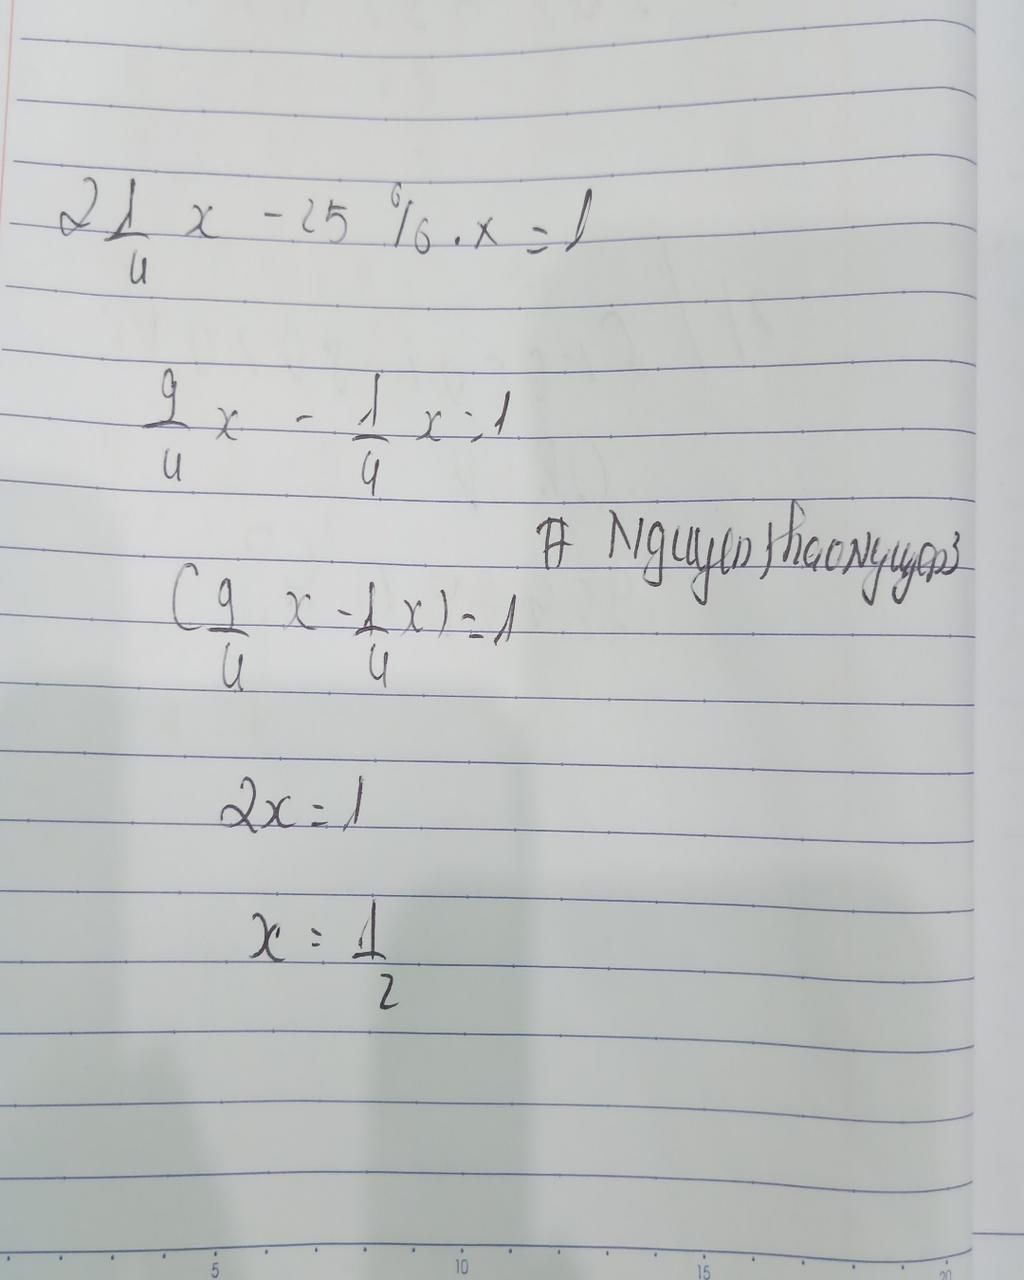 2 1/4 x - 25 % . x = 1
9/4 x - 1/4 x = 1
# NguyenthaoNguyen3
(9/4 x - 1/4 x) = 1
2x = 1
x = 1/2
5 10 15 20